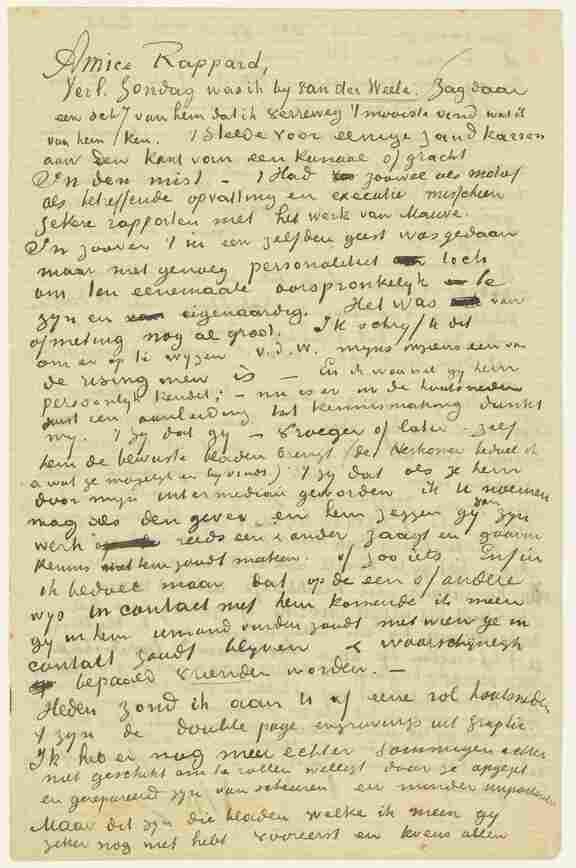 Amice Rappard,
Verl. Zondag was ik by van der Weele. Zag daar
een schij van hem dat ik verreweg 't mooiste vind wat ik
van hem ken. 't Stelde voor eenige zandkarren
aan den kant van een kanaal of gracht
In den mist – 't Had zoowel als motief
als betreffende opvatting en executie misschien
zekere rapporten met het werk van Mauve.
In zoover 't in een zelfden geest was gedaan
maar met genoeg personaliteit toch
om ten eenemaale oorspronkelyk te
zyn en eigenaardig. Het was van
afmeting nog al groot. Ik schryf U dit
om er op te wyzen v.d.W. myns inziens een van
de rising men is – En ik wou wel gy hem
persoonlyk kendet; – nu is er in de houtsneden
juist een aanleiding tot kennismaking dunkt
my. 't zy dat gy – vroeger of later – zelf
hem de bewuste bladen brengt (de Herkomer bedoel ik
a wat ge mogelyk er by vindt) 't zy dat als ge hem
door myn intermediair geworden ik U noemen
mag als den gever en hem zeggen gy van zyn
werk reeds een & ander zaagt en gaarne
kennis met hem zoudt maken. of zoo iets. Enfin
ik bedoel maar dat op de een of andere
wys in contact met hem komende ik meen
gy in hem iemand vinden zoudt met wien ge in
contact zoudt blyven & waarschynlyk
bepaald vrienden worden. –
Heden zond ik aan U af eene rol houtsneden
't zyn de double page engravings uit Graphic.
Ik heb er nog meer echter sommigen echter
niet geschikt om te rollen wellegt daar ze opgezet
en gerepareerd zyn van scheuren en minder
Maar dit zyn die bladen welke ik meen gy
zeker nog niet hebt vooreerst en tevens allen